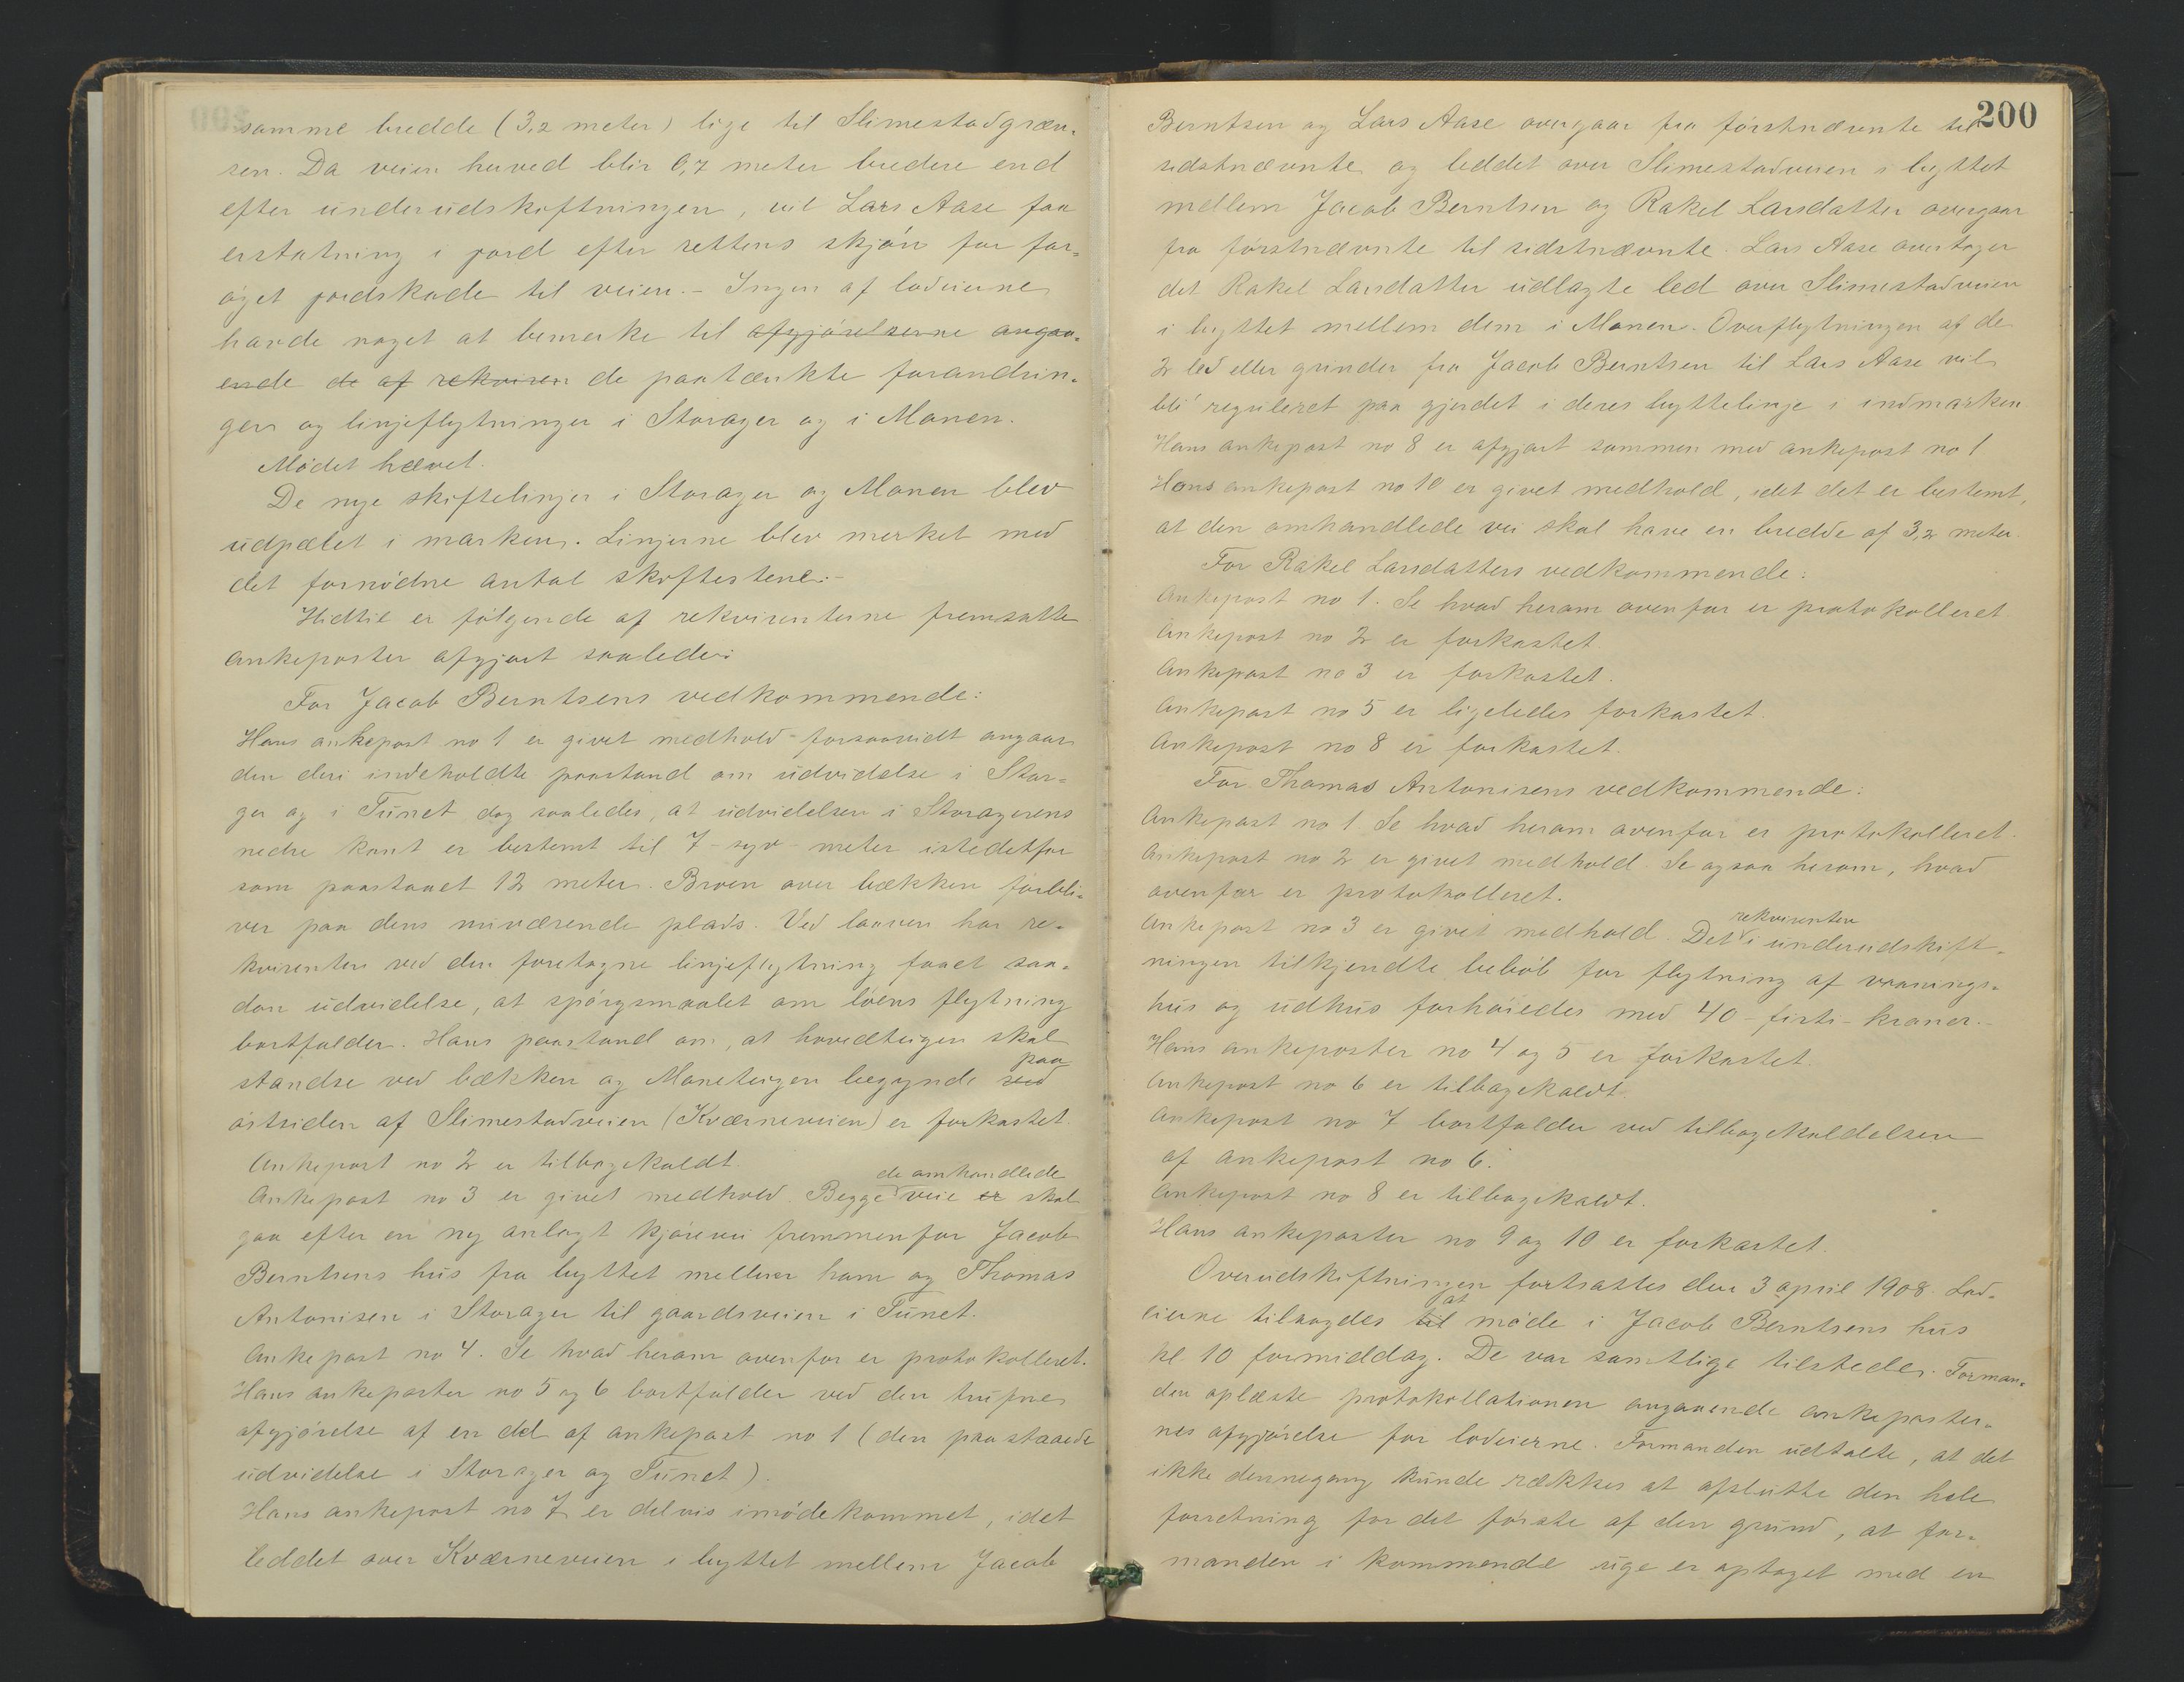 samme bredde (3,2 meter) lige til Slimestadgræn-
sen. Da veien herved blir 0,7 meter bredere end
efter underudskiftningen, vil Lars Aase faa
erstatning i jord efter rettens skjøn for for-
øget jordskade til veien.- Ingen af lodeierne
havde noget at bemerke til afgjørelserne angaa-
ende de af rekviren de paatænkte forandrin-
ger og linjeflytninger i Storager og i Monen.
Mødet hævet.
De nye skiftelinjer i Storager og Monen blev
udpælet i marken. Linjerne blev merket med
det fornødne antal skiftestene.-
Hidtil er følgende af rekvirenterne fremsatte
ankeposter afgjort saaledes:
For Jacob Berntsens vedkommende:
Hans ankepost no 1 er givet medhold forsaavidt angaar
den deri indeholdte paastand om udvidelse i Stor-
ger og i Tunet dog saaledes, at udvidelsen i Storagerens
nedre kant er bestemt til 7 - syv - meter istedetfor
som paastaaet 12 meter. Broen over bækken forbli-
ver paa dens nuværende plads. Ved laaven har re-
kvirenten ved den foretagne linjeflytning faaet saa-
dan udvidelse, at spørgsmaalet om løens flytning
bortfalder. Hans paastand om, at hovedteigen skal
standse ved bækken og Moneteigen begynde ved paa
østsiden af Slimestadveien (Kværneveien) er forkastet.
Ankepost no 2 er tilbagekaldt.
Ankepost no 3 er givet medhold. Begge de omhandlede veie er skal
gaa efter en ny anlagt kjørevei fremmenfor Jacob
Berntsens hus fra byttet mellem ham og Thomas
Antonisen i Storager til gaardsveien i Tunet.
Ankepost no 4. Se hvad herom ovenfor er protokolleret.
Hans ankeposter no 5 og 6 bortfalder ved den trufne
afgjørelse af en del af ankepost no 1 (den paastaaede
udvidelse i Storager og Tunet).
Hans ankepost no 7 er delvis imødekommet, idet
leddet over Kværneveien i byttet mellem Jacob
200
Berntsen og Lars Aase overgaar fra førstnævnte til
sidstnævnte og leddet over Slimestadveien i byttet
mellem Jacob Berntsen og Rakel Larsdatter overgaar
fra førstnævnte til sidstnævnte. Lars Aase overtager
det Rakel Larsdatter udlagte led over Slimestadveien
i byttet mellem dem i Monen. Overflytningen af de
2 led eller grinder fra Jacob Berntsen til Lars Aase vil
bli reguleret paa gjerdet i deres byttelinje i indmarken
Hans ankepost no 8 er afgjort sammen med ankepost no 1
Hans ankepost no 10 er givet medhold, idet det er bestemt,
at den omhandlede vei skal have en bredde af 3,2 meter.
For Rakel Larsdatters vedkommende:
Ankepost no 1. Se hvad herom ovenfor er protokolleret
Ankepost no 2 er forkastet.
Ankepost no 3 er forkastet.
Ankepost no 5 er ligeledes forkastet.
Ankepost no 8 er forkastet.
For Thomas Antonisens vedkommende:
Ankepost no 1. Se hvad herom ovenfor er protokolleret.
Ankepost no 2 er givet medhold. Se ogsaa herom, hvad
ovenfor er protokolleret.
Ankepost no 3 er givet medhold. Det rekvirenten i underudskift-
ningen tilkjendte beløb for flytning af vaanings-
hus og udhus forhøiedes med 40 - firti - kroner.-
Hans ankeposter no 4 og 5 er forkastet.
Ankepost no 6 er tilbagekaldt.
Ankepost no 7 bortfalder ved tilbagekaldelsen
af ankepost no 6.
Ankepost no 8 er tilbagekaldt.
Hans ankeposter no 9 og 10 er forkastet.
Overudskiftningen fortsattes den 3 april 1908. Lod-
eierne tilsagdes til at møde i Jacob Berntsens hus
kl. 10 formiddag. De var samtlige tilstede. Forman-
den oplæste protokollationen angaaende ankeposter-
nes afgjørelse for lodeierne. Formanden udtalte, at det
ikke dennegang kunde rækkes at afslutte den hele
forretning for det første af den grund, at for-
manden i kommende uge er optaget med en